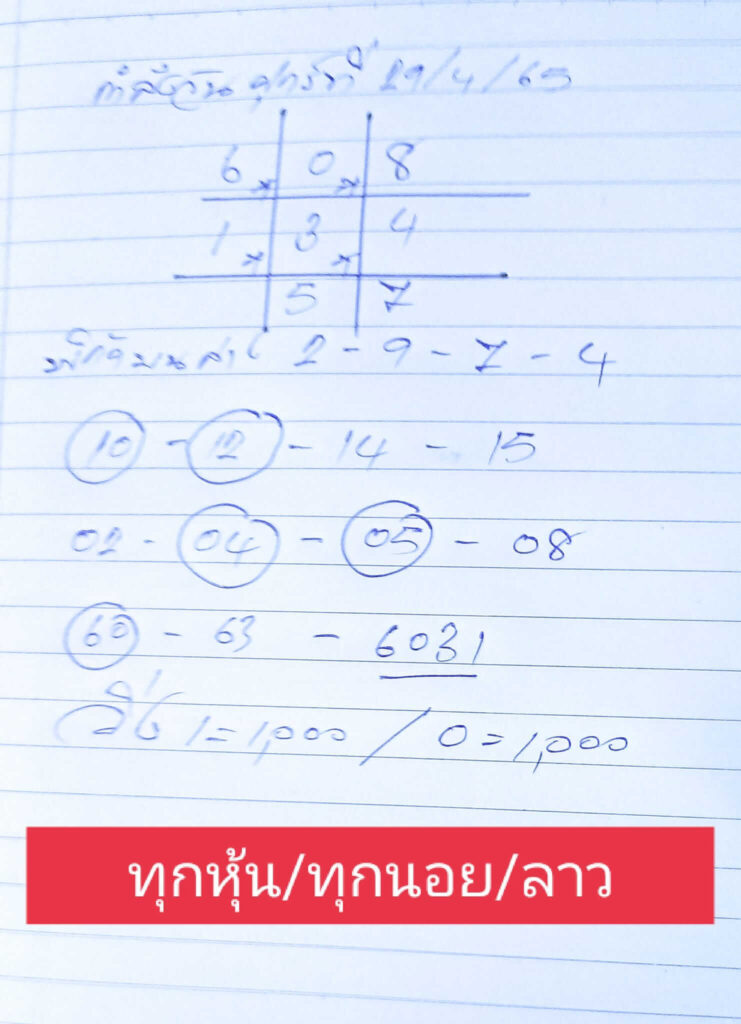 กำลังวัน ศุกร์ที่ 29/4/65
6 x 0 x 8
1 x 3 x 4
5 7
2 - 9 - 7 - 4
10 - 12 - 14 - 15
02 - 04 - 05 - 08
60 - 63 - 6031
วิ่ง 1 = 1,000 / 0 = 1,000
ทุกหุ้น/ทุกนอย/ลาว